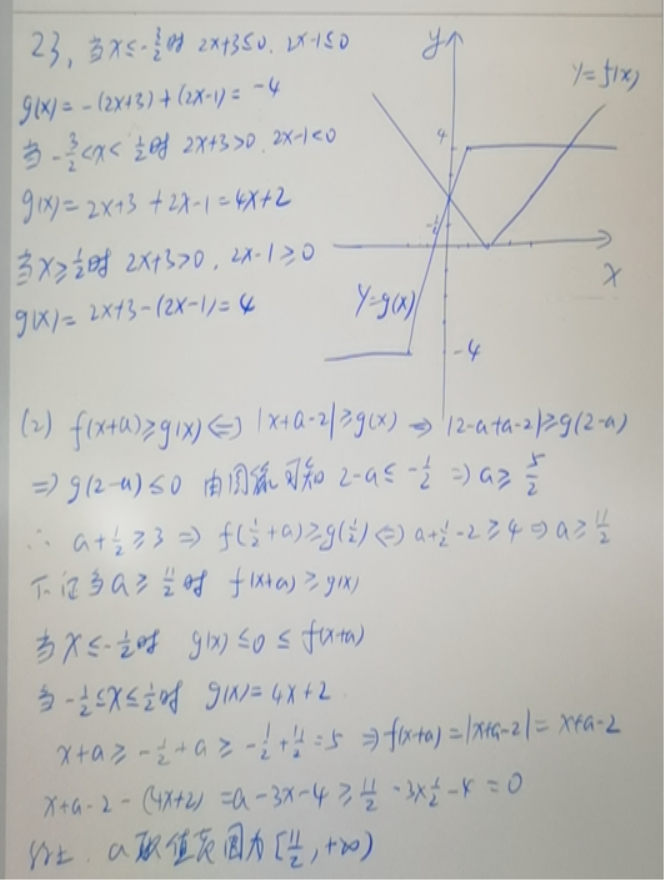 23, 当x≤-3/2时 2x+3≤0. 2x-1≤0
g(x)= -(2x+3)+(2x-1)= -4
当-3/2<x<1/2时 2x+3>0. 2x-1<0
g(x)= 2x+3+2x-1=4x+2
当x≥1/2时 2x+3>0. 2x-1≥0
g(x)= 2x+3-(2x-1)=4
y
y=f(x)
4
-1/2
x
y=g(x)
-4
(2) f(x+a)≥g(x)⇔|x+a-2|≥g(x) ⇒ |2-a+a-2|≥g(2-a)
⇒g(2-a)≤0 由图像可知 2-a≤-1/2 ⇒a≥5/2
∴ a+1/2≥3 ⇒ f(1/2+a)≥g(1/2)⇔a+1/2-2≥4⇒a≥11/2
下证当a≥11/2时 f(x+a)≥g(x)
当x≤-1/2时 g(x)≤0≤f(x+a)
当-1/2≤x≤1/2时 g(x)=4x+2.
x+a≥-1/2+a≥-1/2+11/2=5 ⇒f(x+a)=|x+a-2|=x+a-2
x+a-2-(4x+2)=a-3x-4≥11/2-3×1/2-4=0
综上. a取值范围为[11/2,+∞)